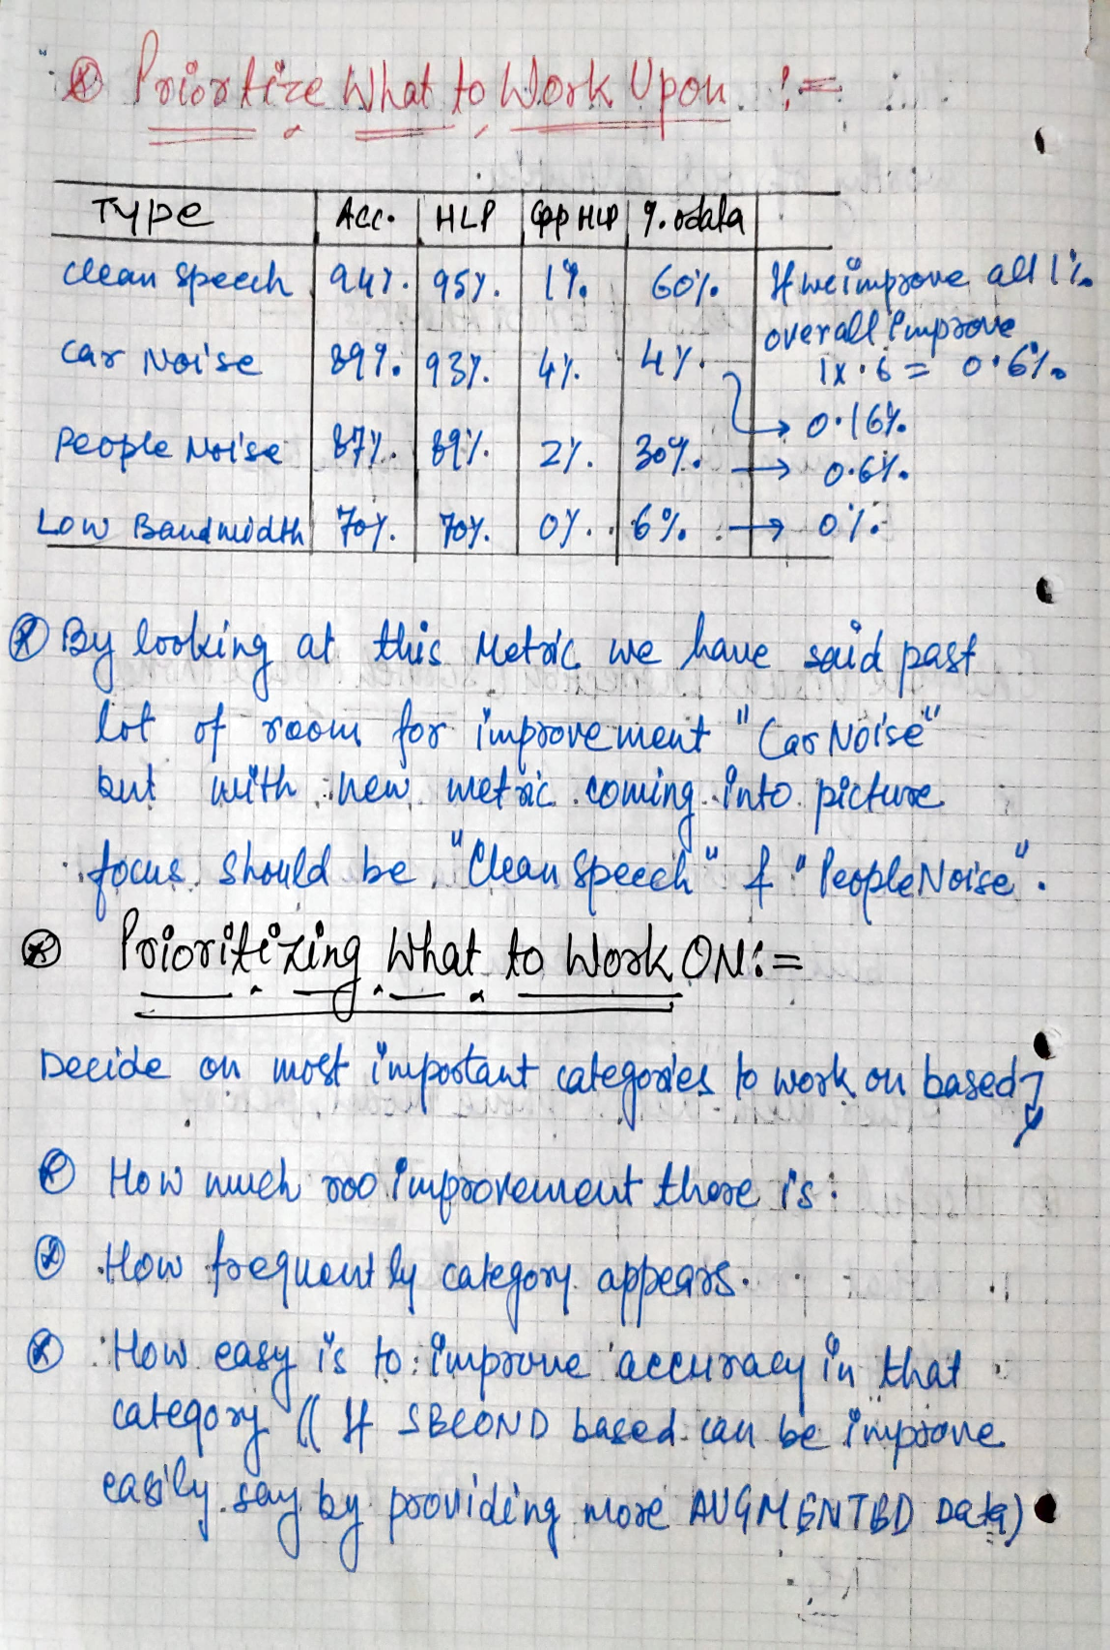 Priortize What to Work Upon :=
Type Acc. HLP Gap HLP %. odata
Clean Speech 94%. 95%. 1%. 60%. If we improve all 1%.
overall improve
Car Noise 89%. 93%. 4%. 4%. 1x.6 = 0.6%.
→ 0.16%.
People Noise 87%. 89%. 2%. 30%. → 0.6%.
Low Bandwidth 70%. 70%. 0%. 6%. → 0%.
By looking at this Metric we have said past
lot of room for improvement "Car Noise"
but with new metric coming into picture
focus should be "Clean Speech" & "People Noise".
Prioritizing What to Work ON:=
Decide on most important categories to work on based
How much roo improvement there is:
How frequently category appears.
How easy is to improve accuracy in that
category (( If SECOND based can be improve
easily say by providing more AUGMENTED Data)